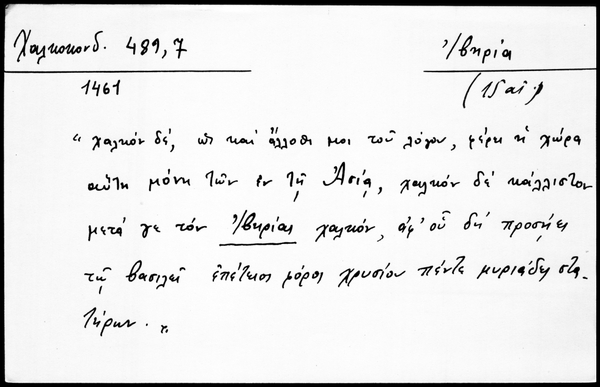 Χαλκοκονδ. 489,7
Ἰβηρία
1461
(15 αἰ.)
"χαλκόν δέ, ὡς καί ἄλλοθί μοι τοῦ λόγου, φέρει ἡ χώρα
αὕτη μόνη τῶν ἐν τῇ Ἀσίᾳ, χαλκόν δέ κάλλιστον
μετά γε τόν Ἰβηρίας χαλκόν, ἀφ' οὗ δή προσῄει
τῷ βασιλεῖ ἐπέτειος φόρος χρυσίου πέντε μυριάδες στα-
τήρων."